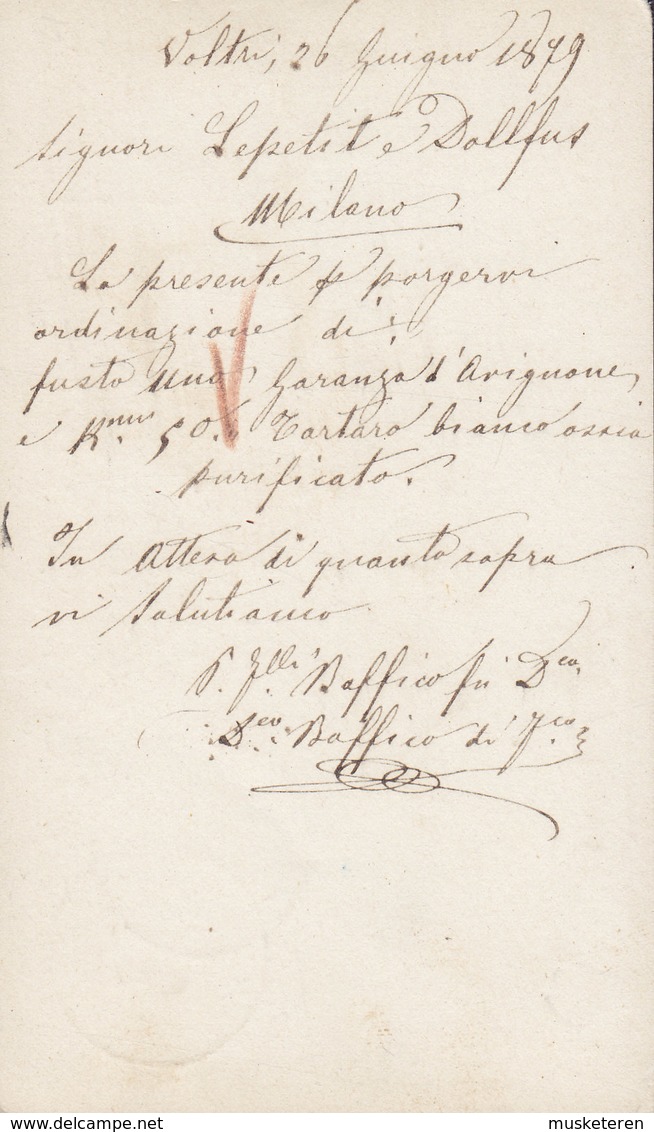 Voltri, 26 Giugno 1879
Signori Lepetit e Dollfus
Milano
La presente p porgervi
ordinazione di:
fusto Uno Garanza d'Avignone,
e K.mi 50. Tartaro bianco ossia
purificato.
In Attesa di quanto sopra
vi Salutiamo
P. Flli Baffico fu D.co
D.co Baffico di F.co
www.delcampe.net
musketeren